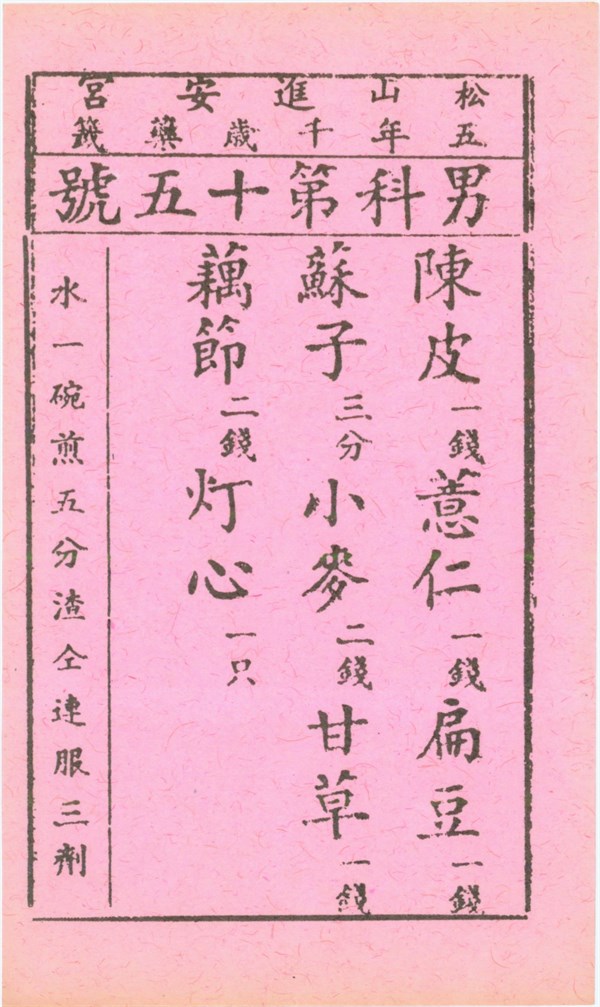 松山進安宮
五年千歲藥籤
男科第十五號
陳皮一錢薏仁一錢扁豆一錢
蘇子三分小麥二錢甘草一錢
藕節二錢灯心一只
水一碗煎五分渣仝連服三劑